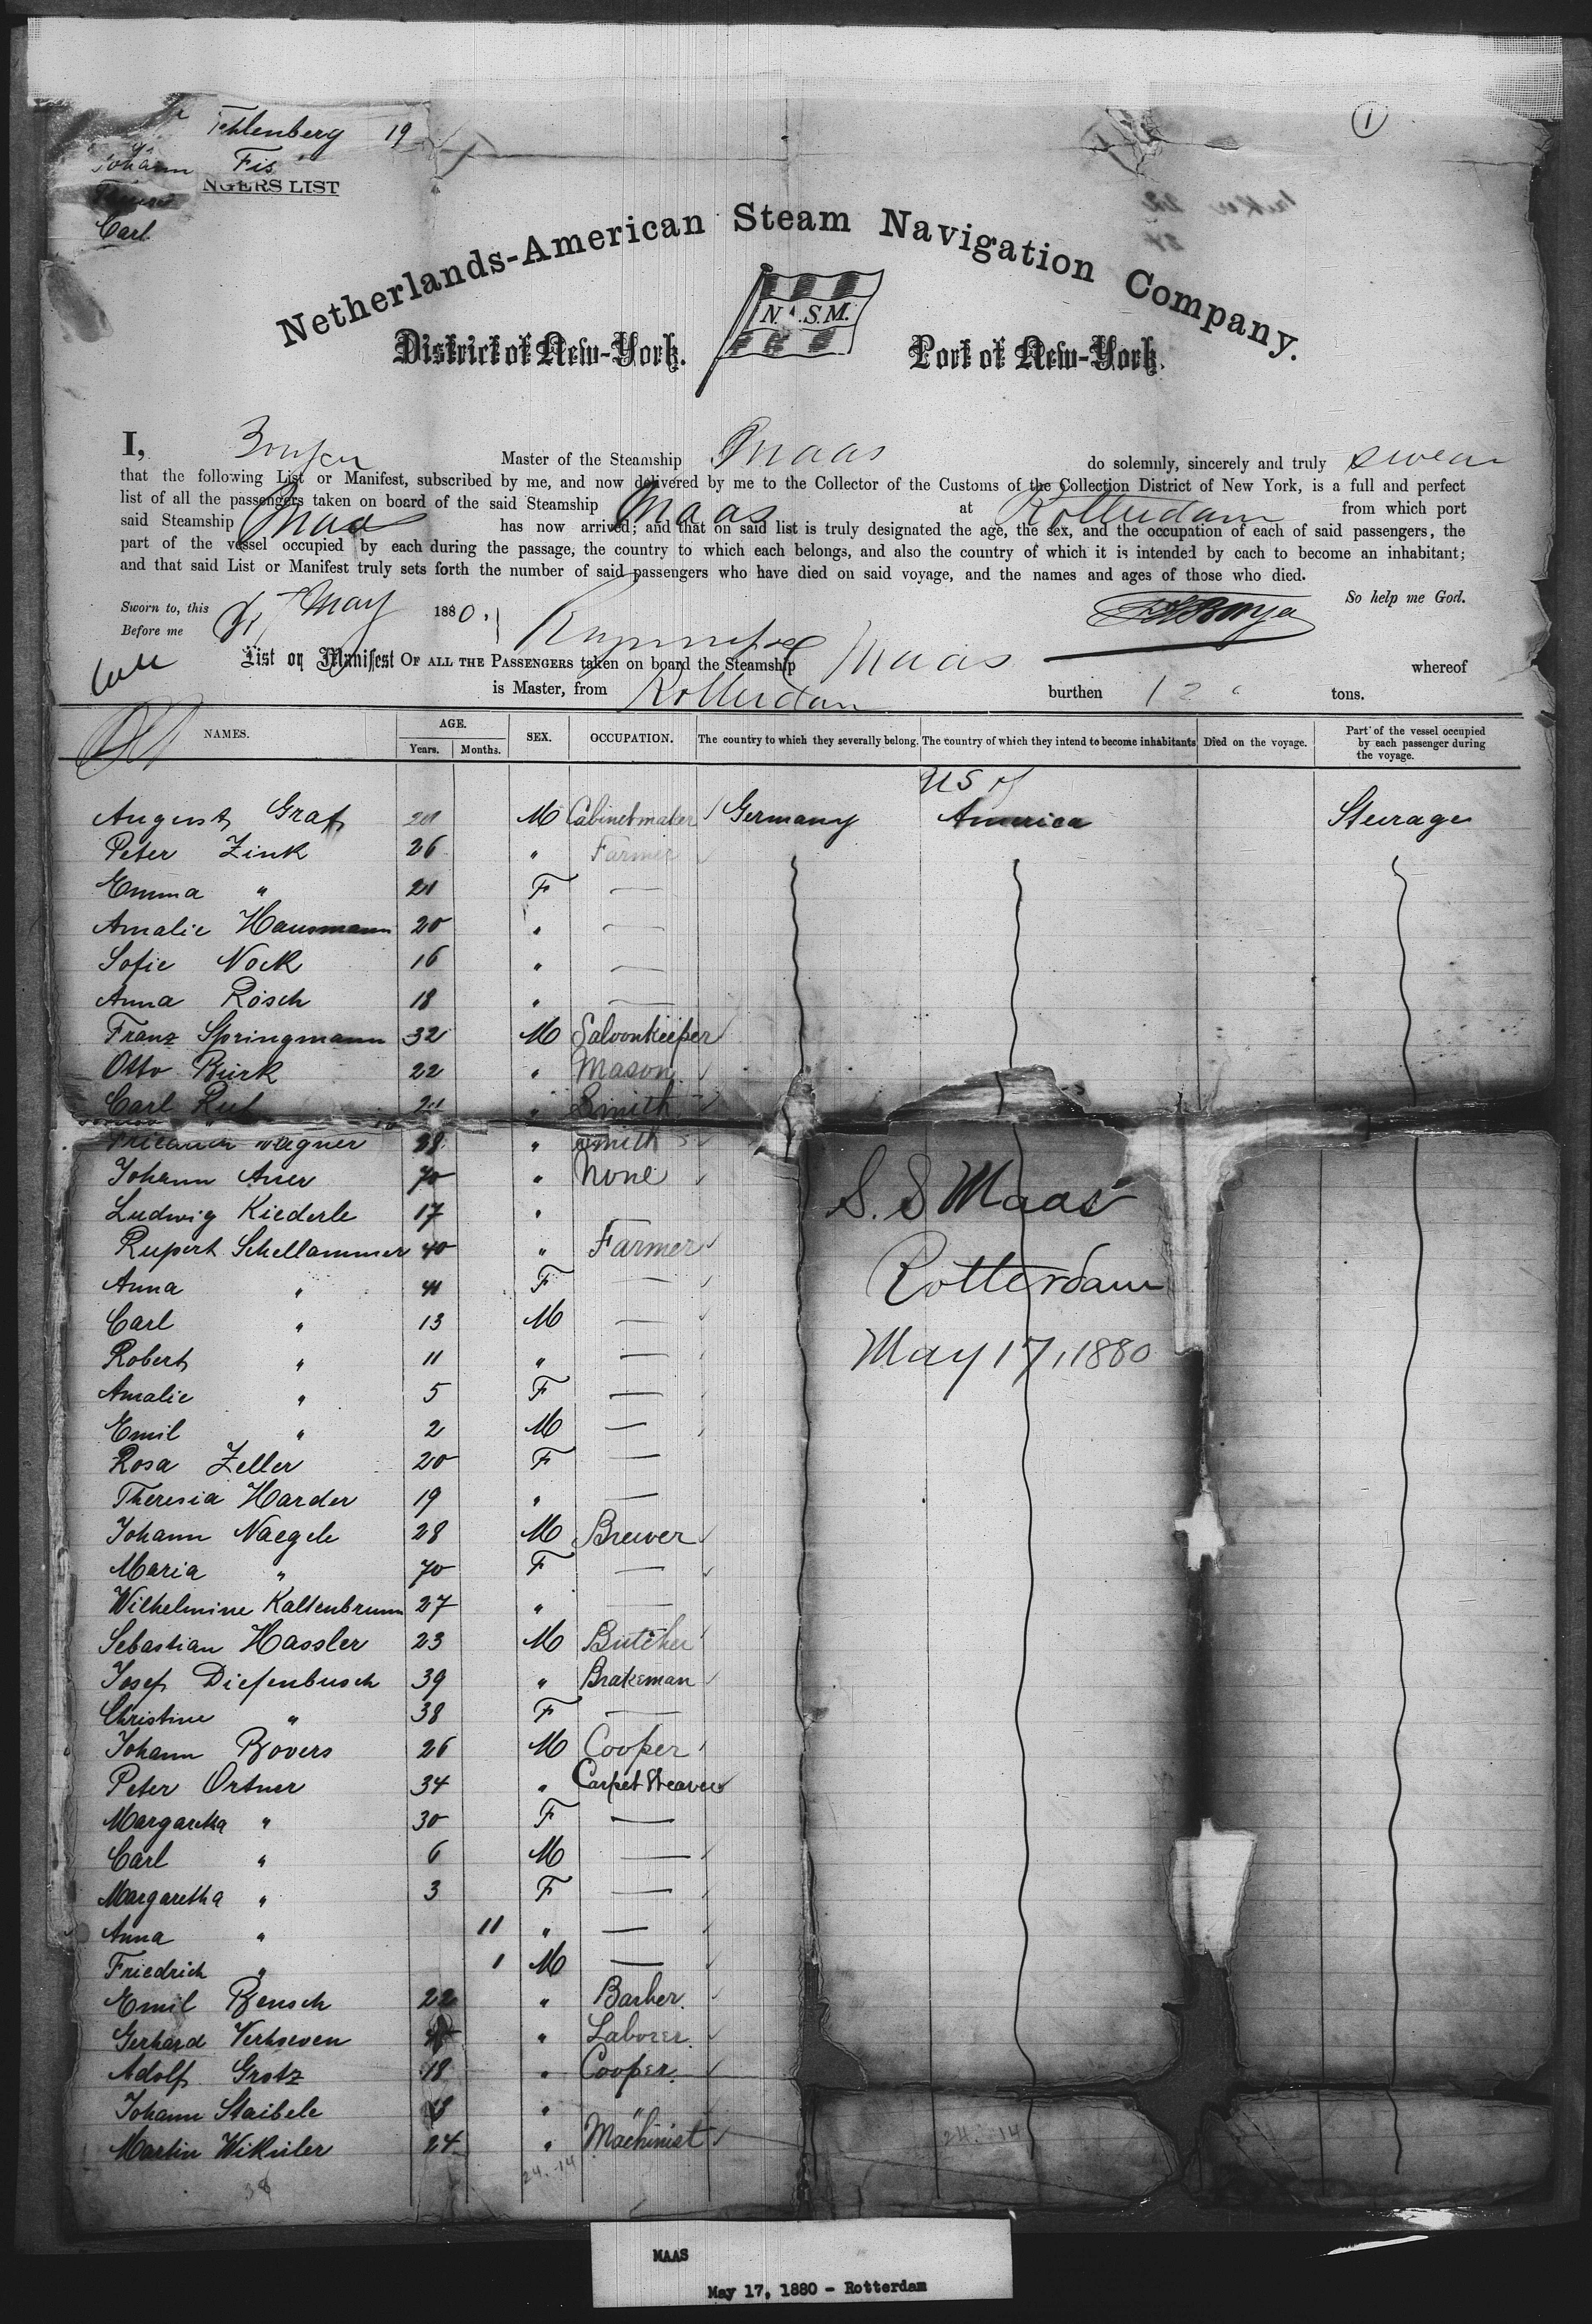 Tehlenberg 19
Johann Fis
NGERS LIST
Carl
1
Netherlands-American Steam Navigation Company.
N.A.S.M.
District of New-York. Port of New-York.
I, Master of the Steamship Maas do solemnly, sincerely and truly swear
that the following List or Manifest, subscribed by me, and now delivered by me to the Collector of the Customs of the Collection District of New York, is a full and perfect
list of all the passengers taken on board of the said Steamship Maas at Rotterdam from which port
said Steamship Maas has now arrived; and that on said list is truly designated the age, the sex, and the occupation of each of said passengers, the
part of the vessel occupied by each during the passage, the country to which each belongs, and also the country of which it is intended by each to become an inhabitant;
and that said List or Manifest truly sets forth the number of said passengers who have died on said voyage, and the names and ages of those who died.
Sworn to, this 17 May 1880. So help me God.
Before me
List or Manifest OF ALL THE PASSENGERS taken on board the Steamship Maas whereof
is Master, from Rotterdam burthen tons.
NAMES. AGE. Years. Months. SEX. OCCUPATION. The country to which they severally belong. The country of which they intend to become inhabitants Died on the voyage. Part of the vessel occupied by each passenger during the voyage.
US of
August Graf M Cabinetmaker Germany America Steerage
Peter Zink 26 " Farmer
Emma " 21 F —
Amalie Hausmann 20 " —
Sofie Nock 16 " —
Anna Rösch 18 " —
Franz Springmann 32 M Saloonkeeper
Otto Bürk 22 " Mason
Carl Ruf 21 " Smith
Friedrich Wagner 28 " Smith
Johann Auer 70 " None
Ludwig Kiederle 17 "
Rupert Schellammer 40 " Farmer
Anna " 41 F —
Carl " 13 M —
Robert " 11 " —
Amalie " 5 F —
Emil " 2 M —
Rosa Zeller 20 F —
Theresia Harder 19 " —
Johann Naegele 28 M Brewer
Maria " 70 F —
Wilhelmine Kaltenbrunn 27 " —
Sebastian Hassler 23 M Butcher
Josef Diefenbusch 39 " Brakeman
Christine " 38 F —
Johann Bovers 26 M Cooper
Peter Ortner 34 " Carpet Weaver
Margaretha " 30 F —
Carl " 6 M —
Margaretha " 3 F —
Anna " 11 " —
Friedrich " 1 M —
Emil Bensch 22 " Barber.
Gerhard Verhoeven " Laborer.
Adolf Grotz 18 " Cooper.
Johann Staibele 18 " "
Martin Wikuler 24 " Machinist
S.S Maas
Rotterdam
May 17, 1880
24.-14
24.-14
38
MAAS
May 17, 1880 - Rotterdam